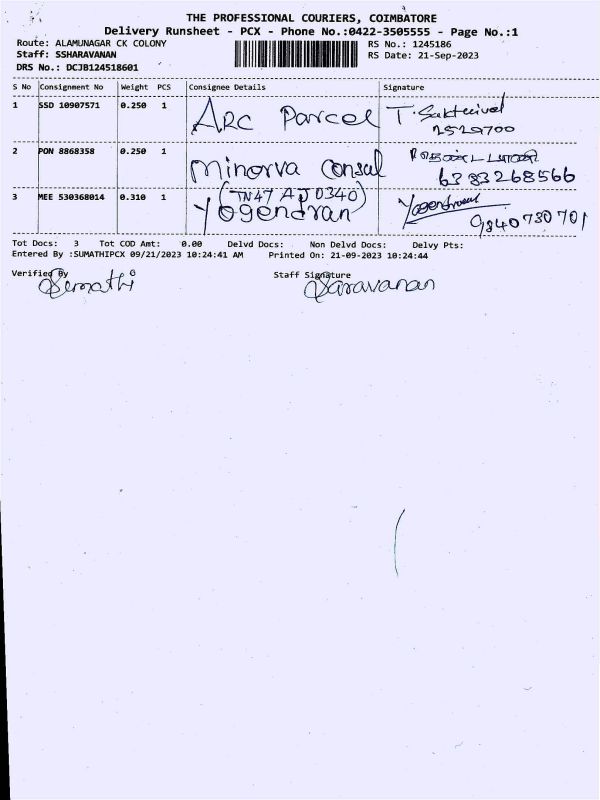 THE PROFESSIONAL COURIERS, COIMBATORE
Delivery Runsheet - PCX - Phone No.:0422-3505555 - Page No.:1
Route: ALAMUNAGAR CK COLONY
Staff: SSHARAVANAN
DRS No.: DCJB124518601
RS No.: 1245186
RS Date: 21-Sep-2023
S No Consignment No Weight PCS Consignee Details Signature
1 SSD 10907571 0.250 1 ARC Parcel T. Sakthivel
2529700
2 PON 8868358 0.250 1 Minorva Consal
6383268566
(TN47 AJ 0340)
3 MEE 530368014 0.310 1 Yogendran Yogendran
9840730701
Tot Docs: 3 Tot COD Amt: 0.00 Delvd Docs: Non Delvd Docs: Delvy Pts:
Entered By :SUMATHIPCX 09/21/2023 10:24:41 AM Printed On: 21-09-2023 10:24:44
Verified By Staff Signature
Sumathi Saravanan